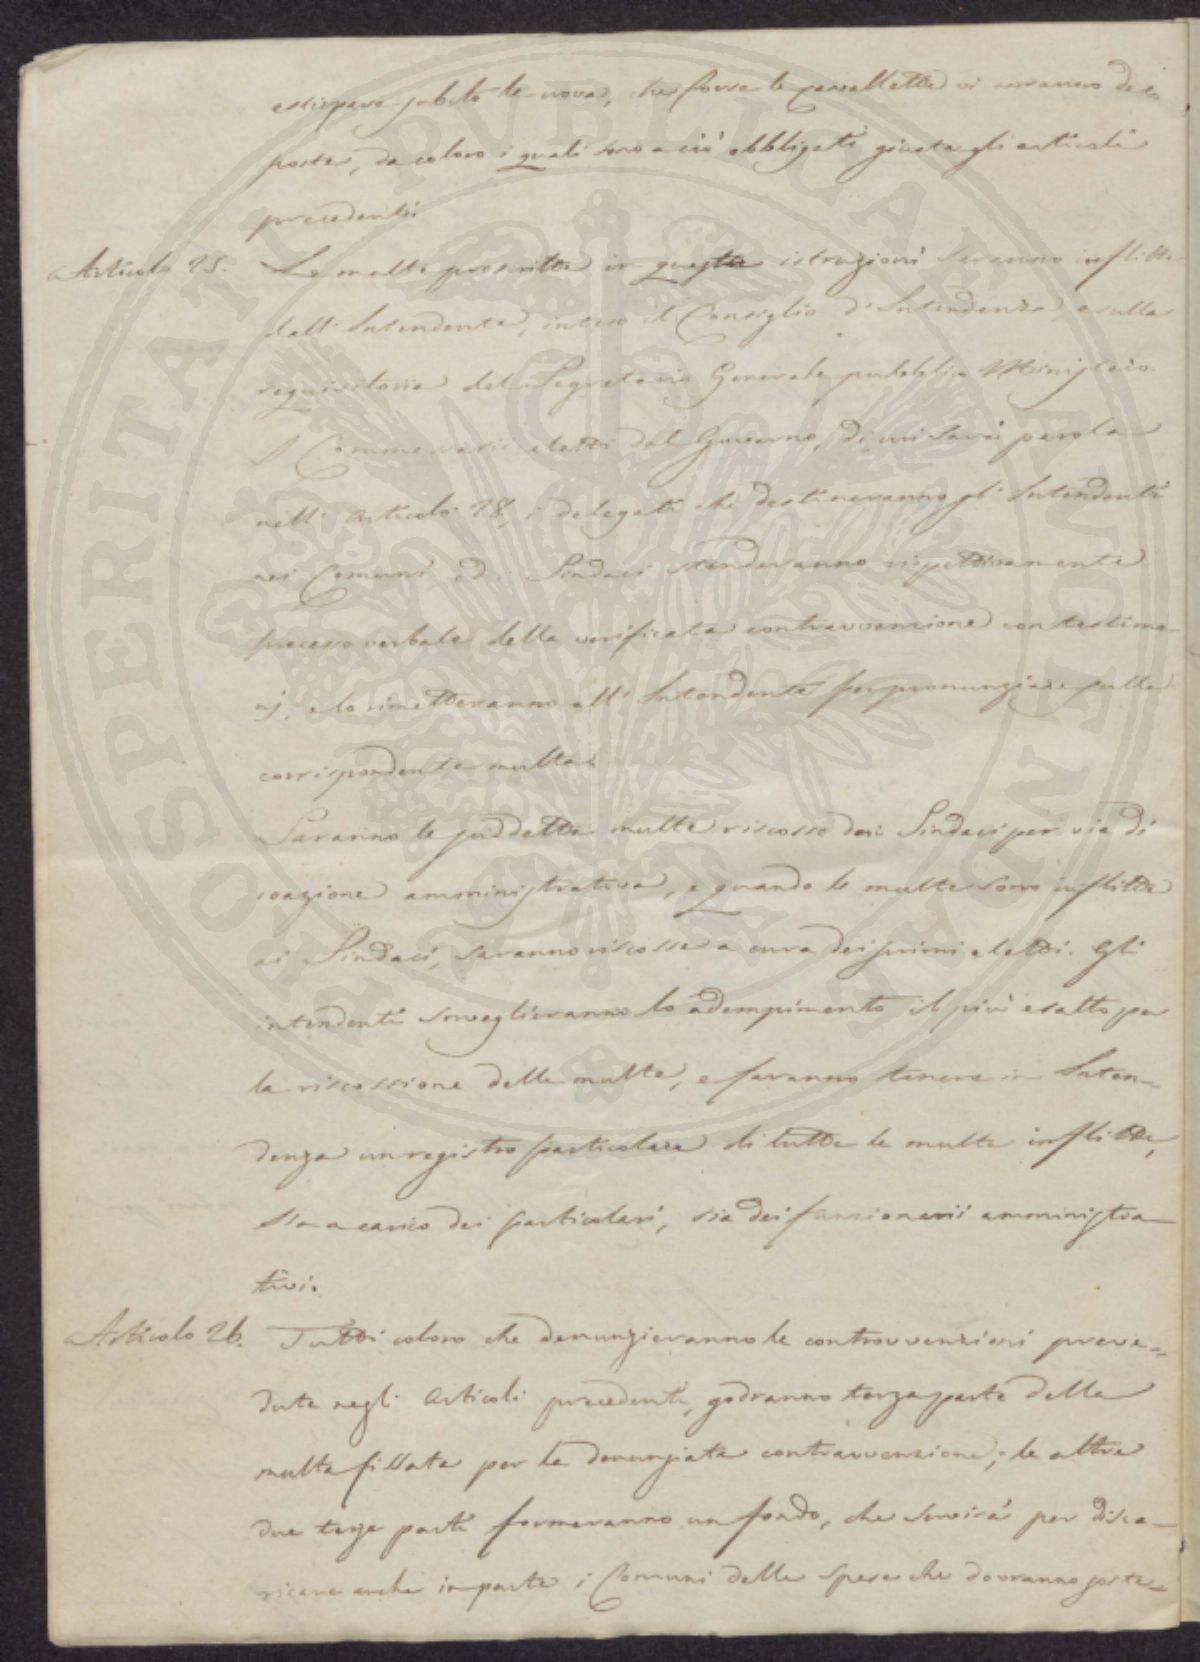 estirpare subito le uova, che forse le cavallette vi avranno de=
poste, da coloro i quali sono a ciò obbligati giusta gli articoli
precedenti.
Articolo 25. Le multe prescritte in queste istruzioni saranno inflitte
dall'Intendente, inteso il Consiglio d'Intendenza, e sulla
requisitoria del Segretario Generale pubblico Ministero.
I Commessarii eletti dal Governo, di cui sarà parola
nell'Articolo 28, i delegati che destineranno gl'Intendenti
nei Comuni ed i Sindaci stenderanno rispettivamente
processo verbale della verificata contravvenzione con testimo-
nj, e lo rimetteranno all'Intendente per pronunziare sulla
corrispondente multa.
Saranno le suddette multe riscosse dai Sindaci per via di
coazione amministrativa, e quando le multe sono inflitte
ai Sindaci, saranno riscosse a cura dei primi eletti. Gli
intendenti sorveglieranno lo adempimento il più esatto per
la riscossione delle multe, e faranno tenere in Inten=
denza un registro particolare di tutte le multe inflitte,
sia a carico dei particolari, sia dei funzionarii amministra-
tivi.
Articolo 26. Tutti coloro che denunzieranno le controvvenzioni preve=
dute negli Articoli precedenti, godranno terza parte della
multa fissata per la denunziata contravvenzione; le altre
due terze parti formeranno un fondo, che servirà per disca-
ricare anche in parte i Comuni delle spese che dovranno soste=
PROSPERITATI PVBLICAE AVGENDAE